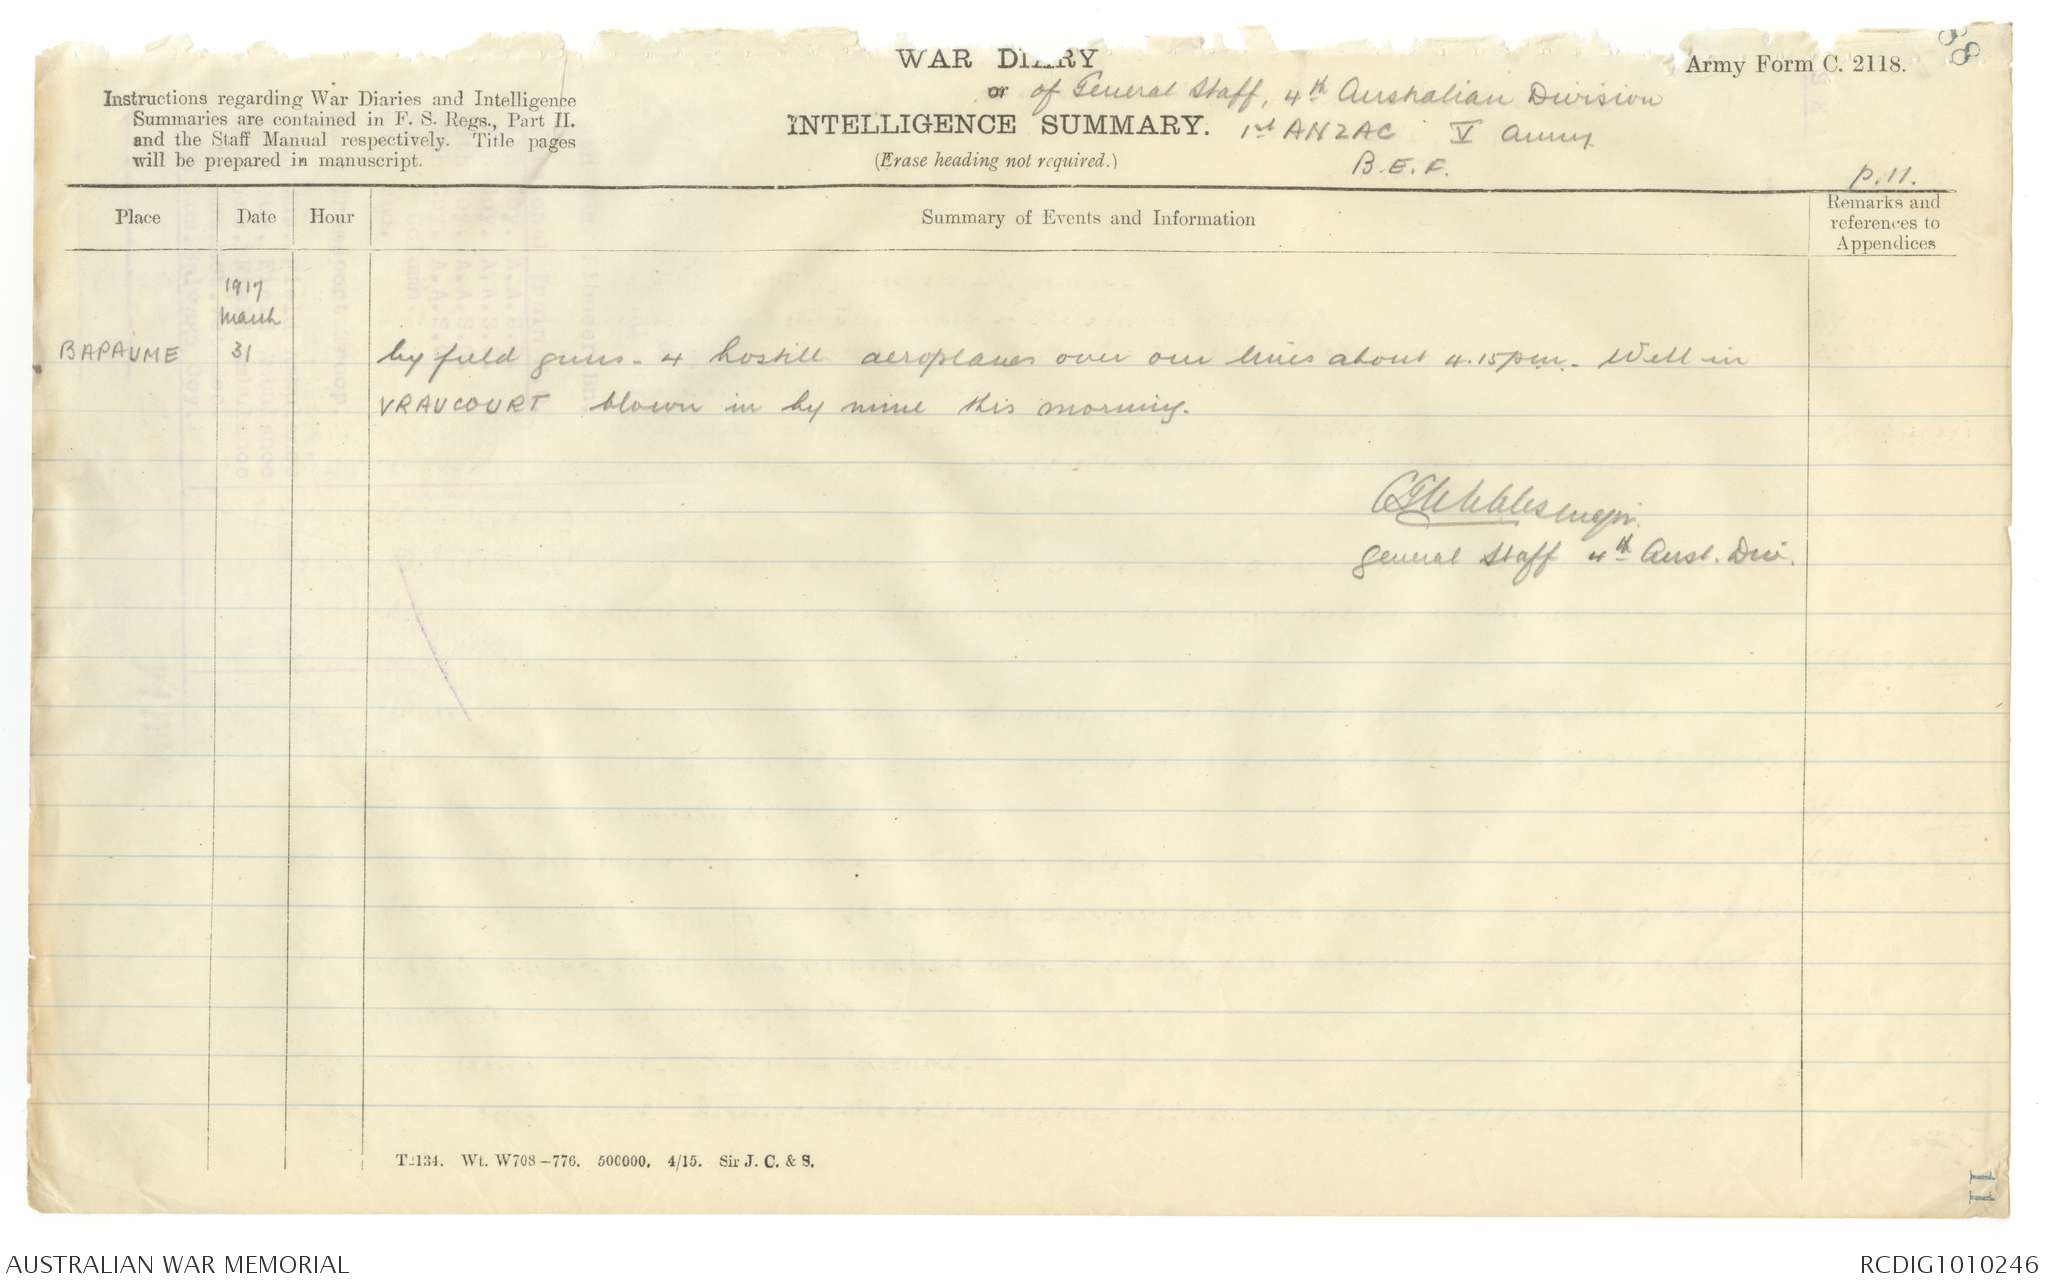 WAR DIARY
or of General Staff, 4th Australian Division
INTELLIGENCE SUMMARY. 1st ANZAC V Army
(Erase heading not required.) B.E.F.
Army Form C. 2118.
88
Instructions regarding War Diaries and Intelligence
Summaries are contained in F. S. Regs., Part II.
and the Staff Manual respectively. Title pages
will be prepared in manuscript.
p.11.
Place Date Hour Summary of Events and Information Remarks and
references to
Appendices
1917
March
BAPAUME 31 by field guns - 4 hostill aeroplanes over our lines about 4.15pm. - Well in
VRAUCOURT blown in by mine this morning.
Major.
General Staff 4th Aust. Div.
T2134. Wt. W708-776. 500000. 4/15. Sir J. C. & S.
11
AUSTRALIAN WAR MEMORIAL
RCDIG1010246